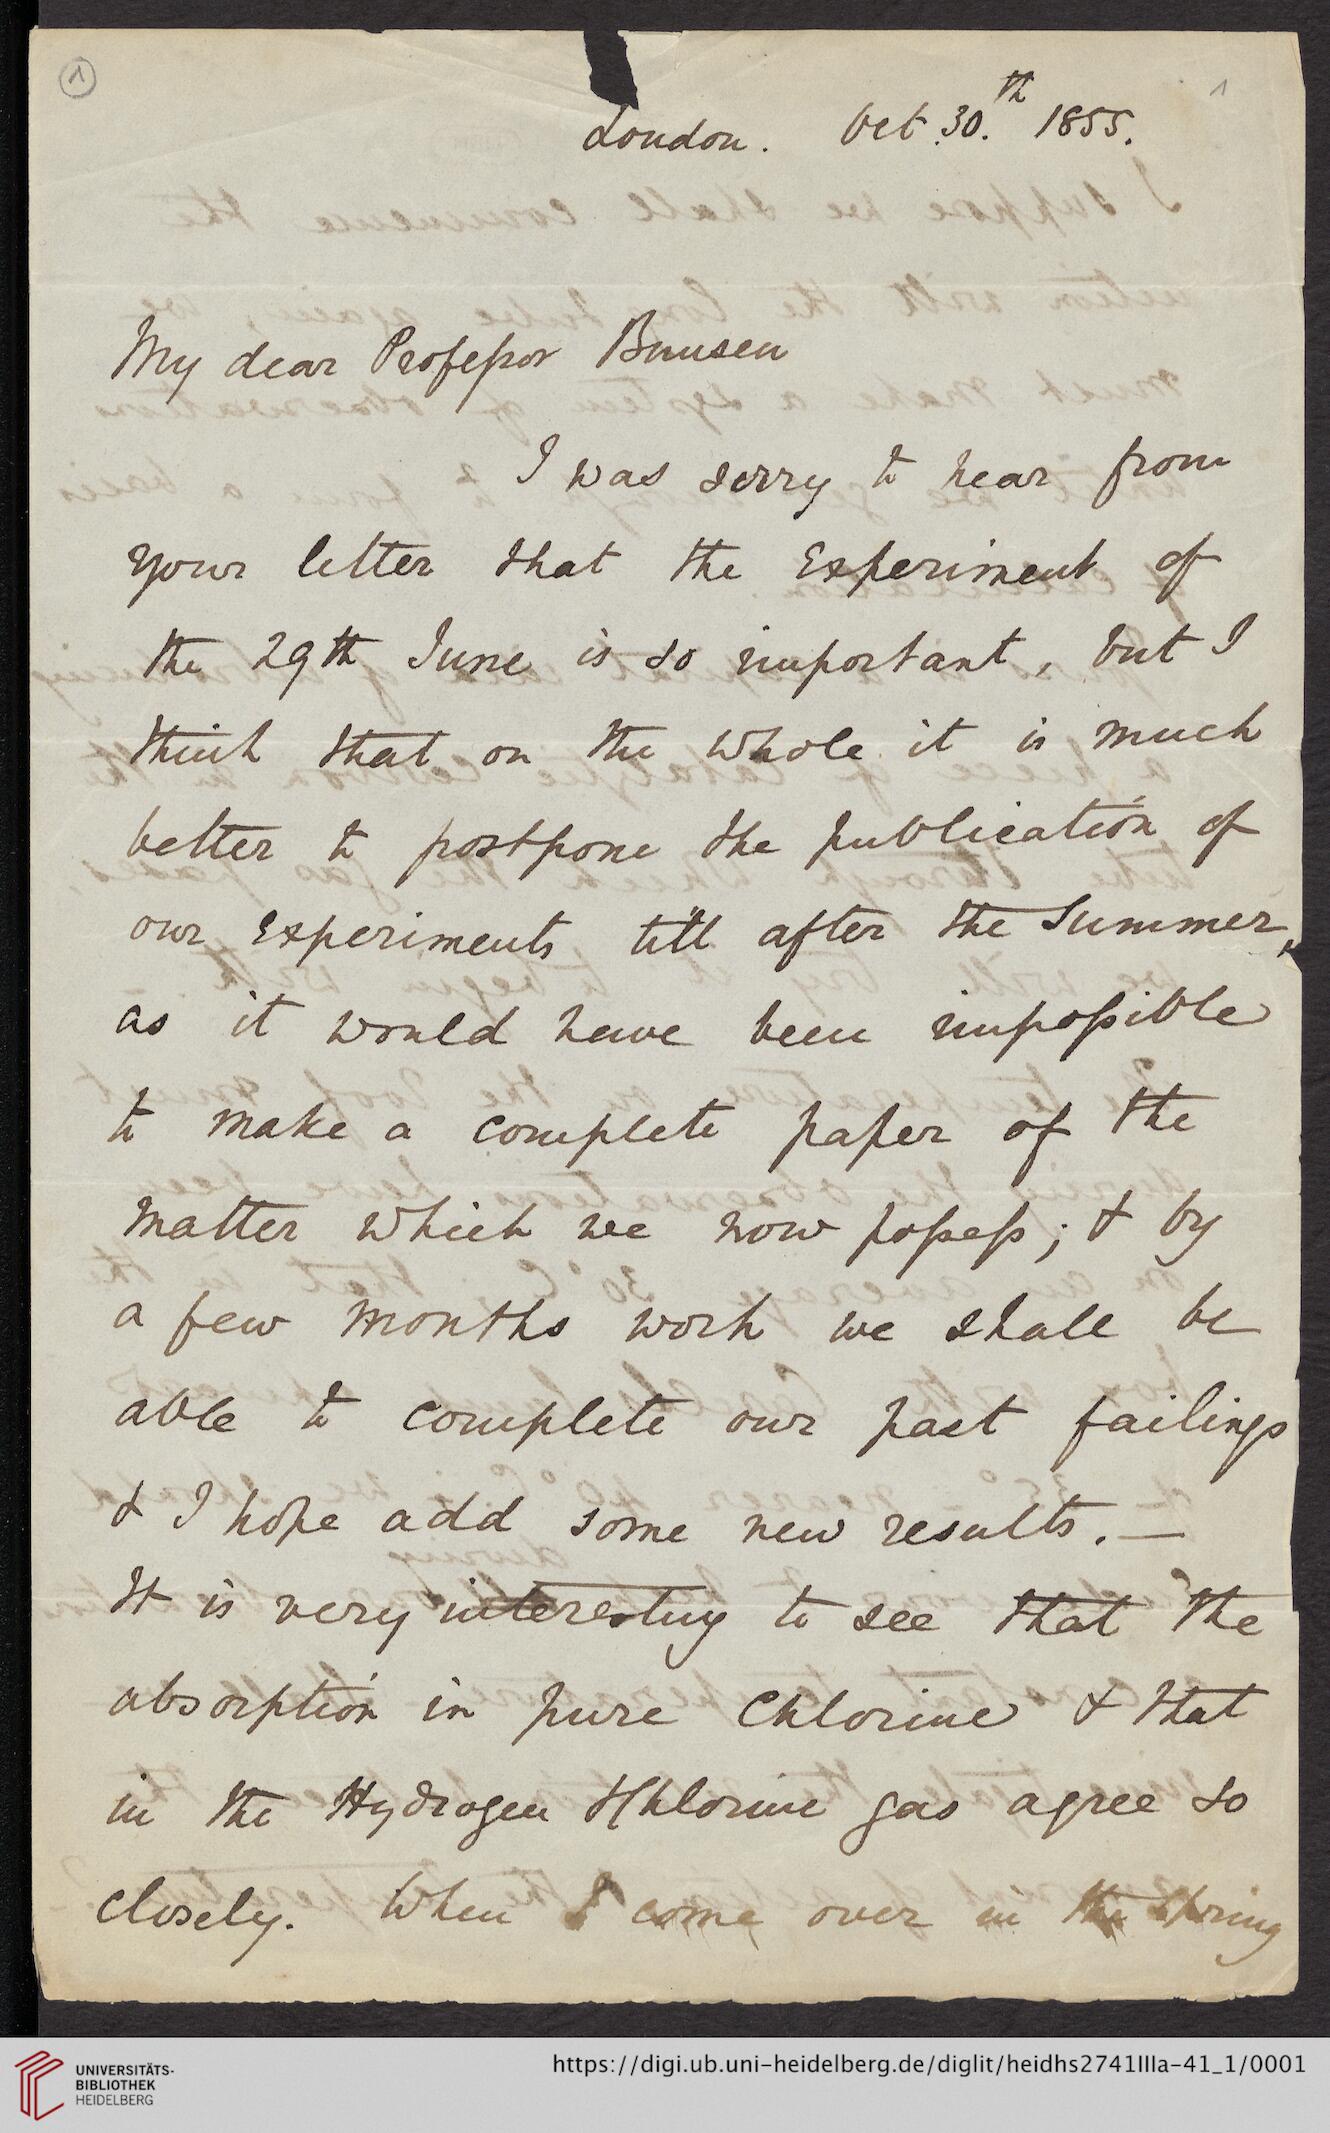 1
1
London. Oct. 30.th 1855.
My dear Professor Bunsen
I was sorry to hear from
your letter that the Experiment of
the 29th June is so important, but I
think that on the whole it is much
better to postpone the publication of
our Experiments till after the Summer,
as it would have been impossible
to make a complete paper of the
matter which we now possess; & by
a few months work we shall be
able to complete our past failings
& I hope add some new results. —
It is very interesting to see that the
absorption in pure Chlorine & that
in the Hydrogen & Chlorine gas agree so
closely. When I come over in the Spring
UNIVERSITÄTS-
BIBLIOTHEK
HEIDELBERG
https://digi.ub.uni-heidelberg.de/diglit/heidhs2741IIIa-41_1/0001